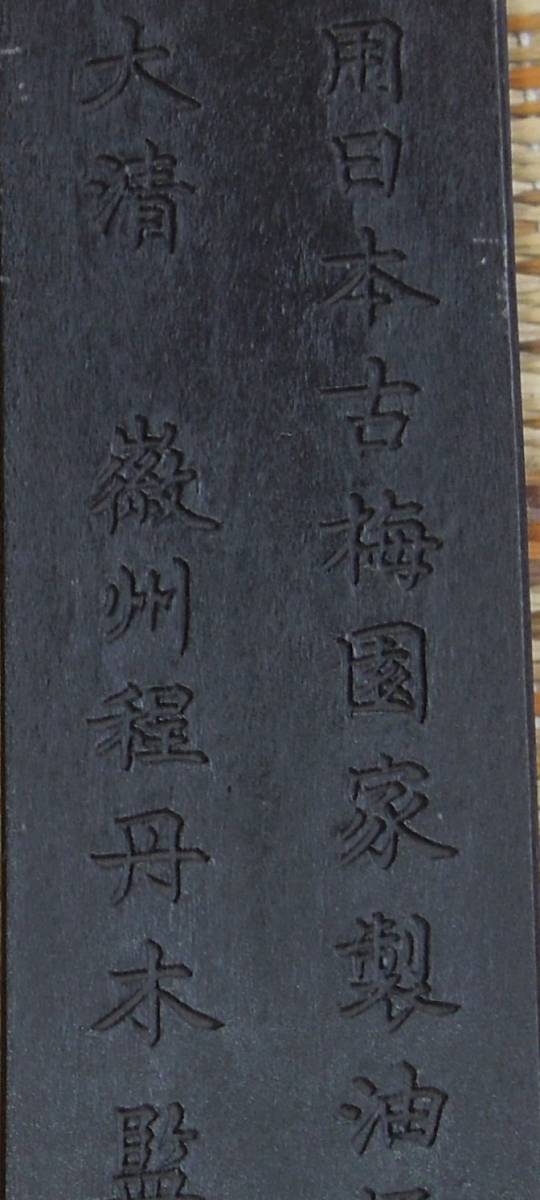 用日本古梅園家製油
大清 徽州程丹木監